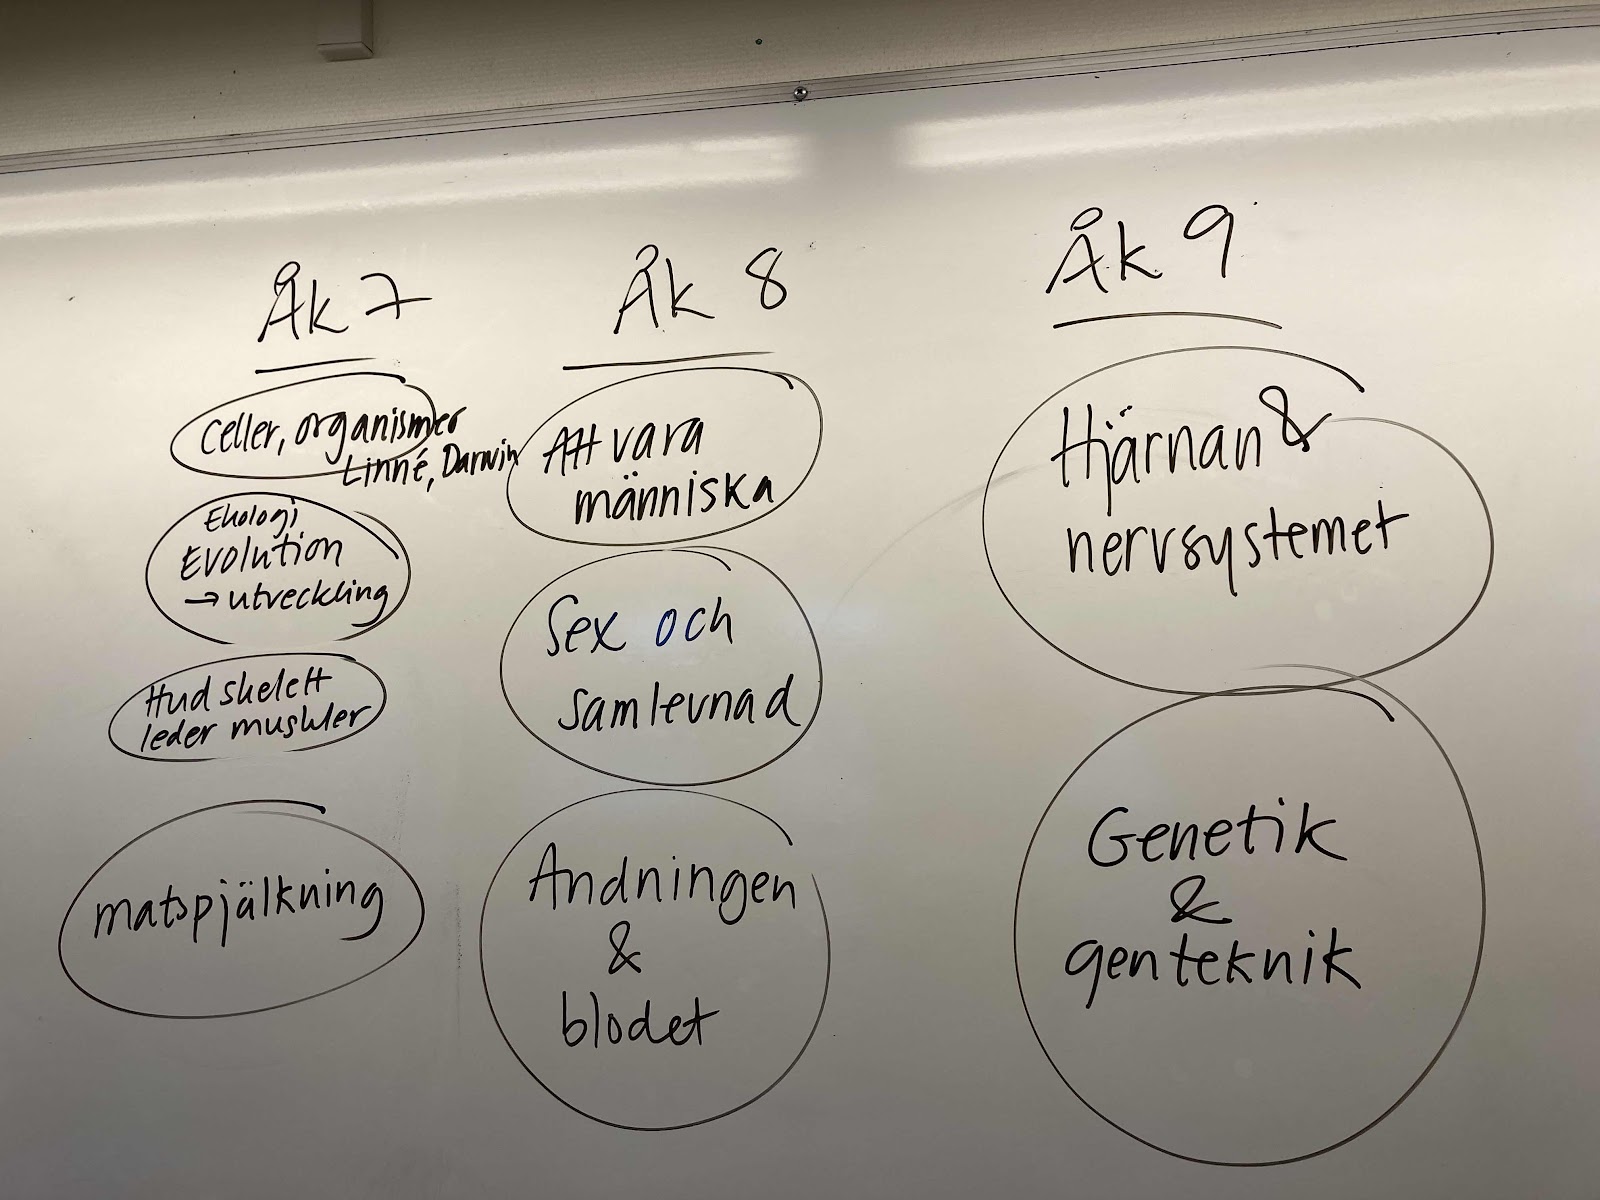 Åk 7
celler, organismer
Linné, Darwin
Ekologi
Evolution
→ utveckling
Hud skelett
leder muskler
matspjälkning
Åk 8
Att vara
människa
Sex och
samlevnad
Andningen
&
blodet
Åk 9
Hjärnan &
nervsystemet
Genetik
&
genteknik